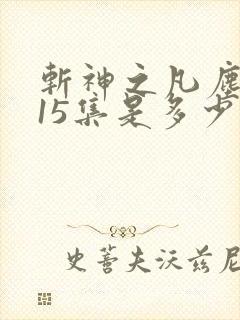 斩神之凡尘
15集是多少
史蒂夫沃兹尼